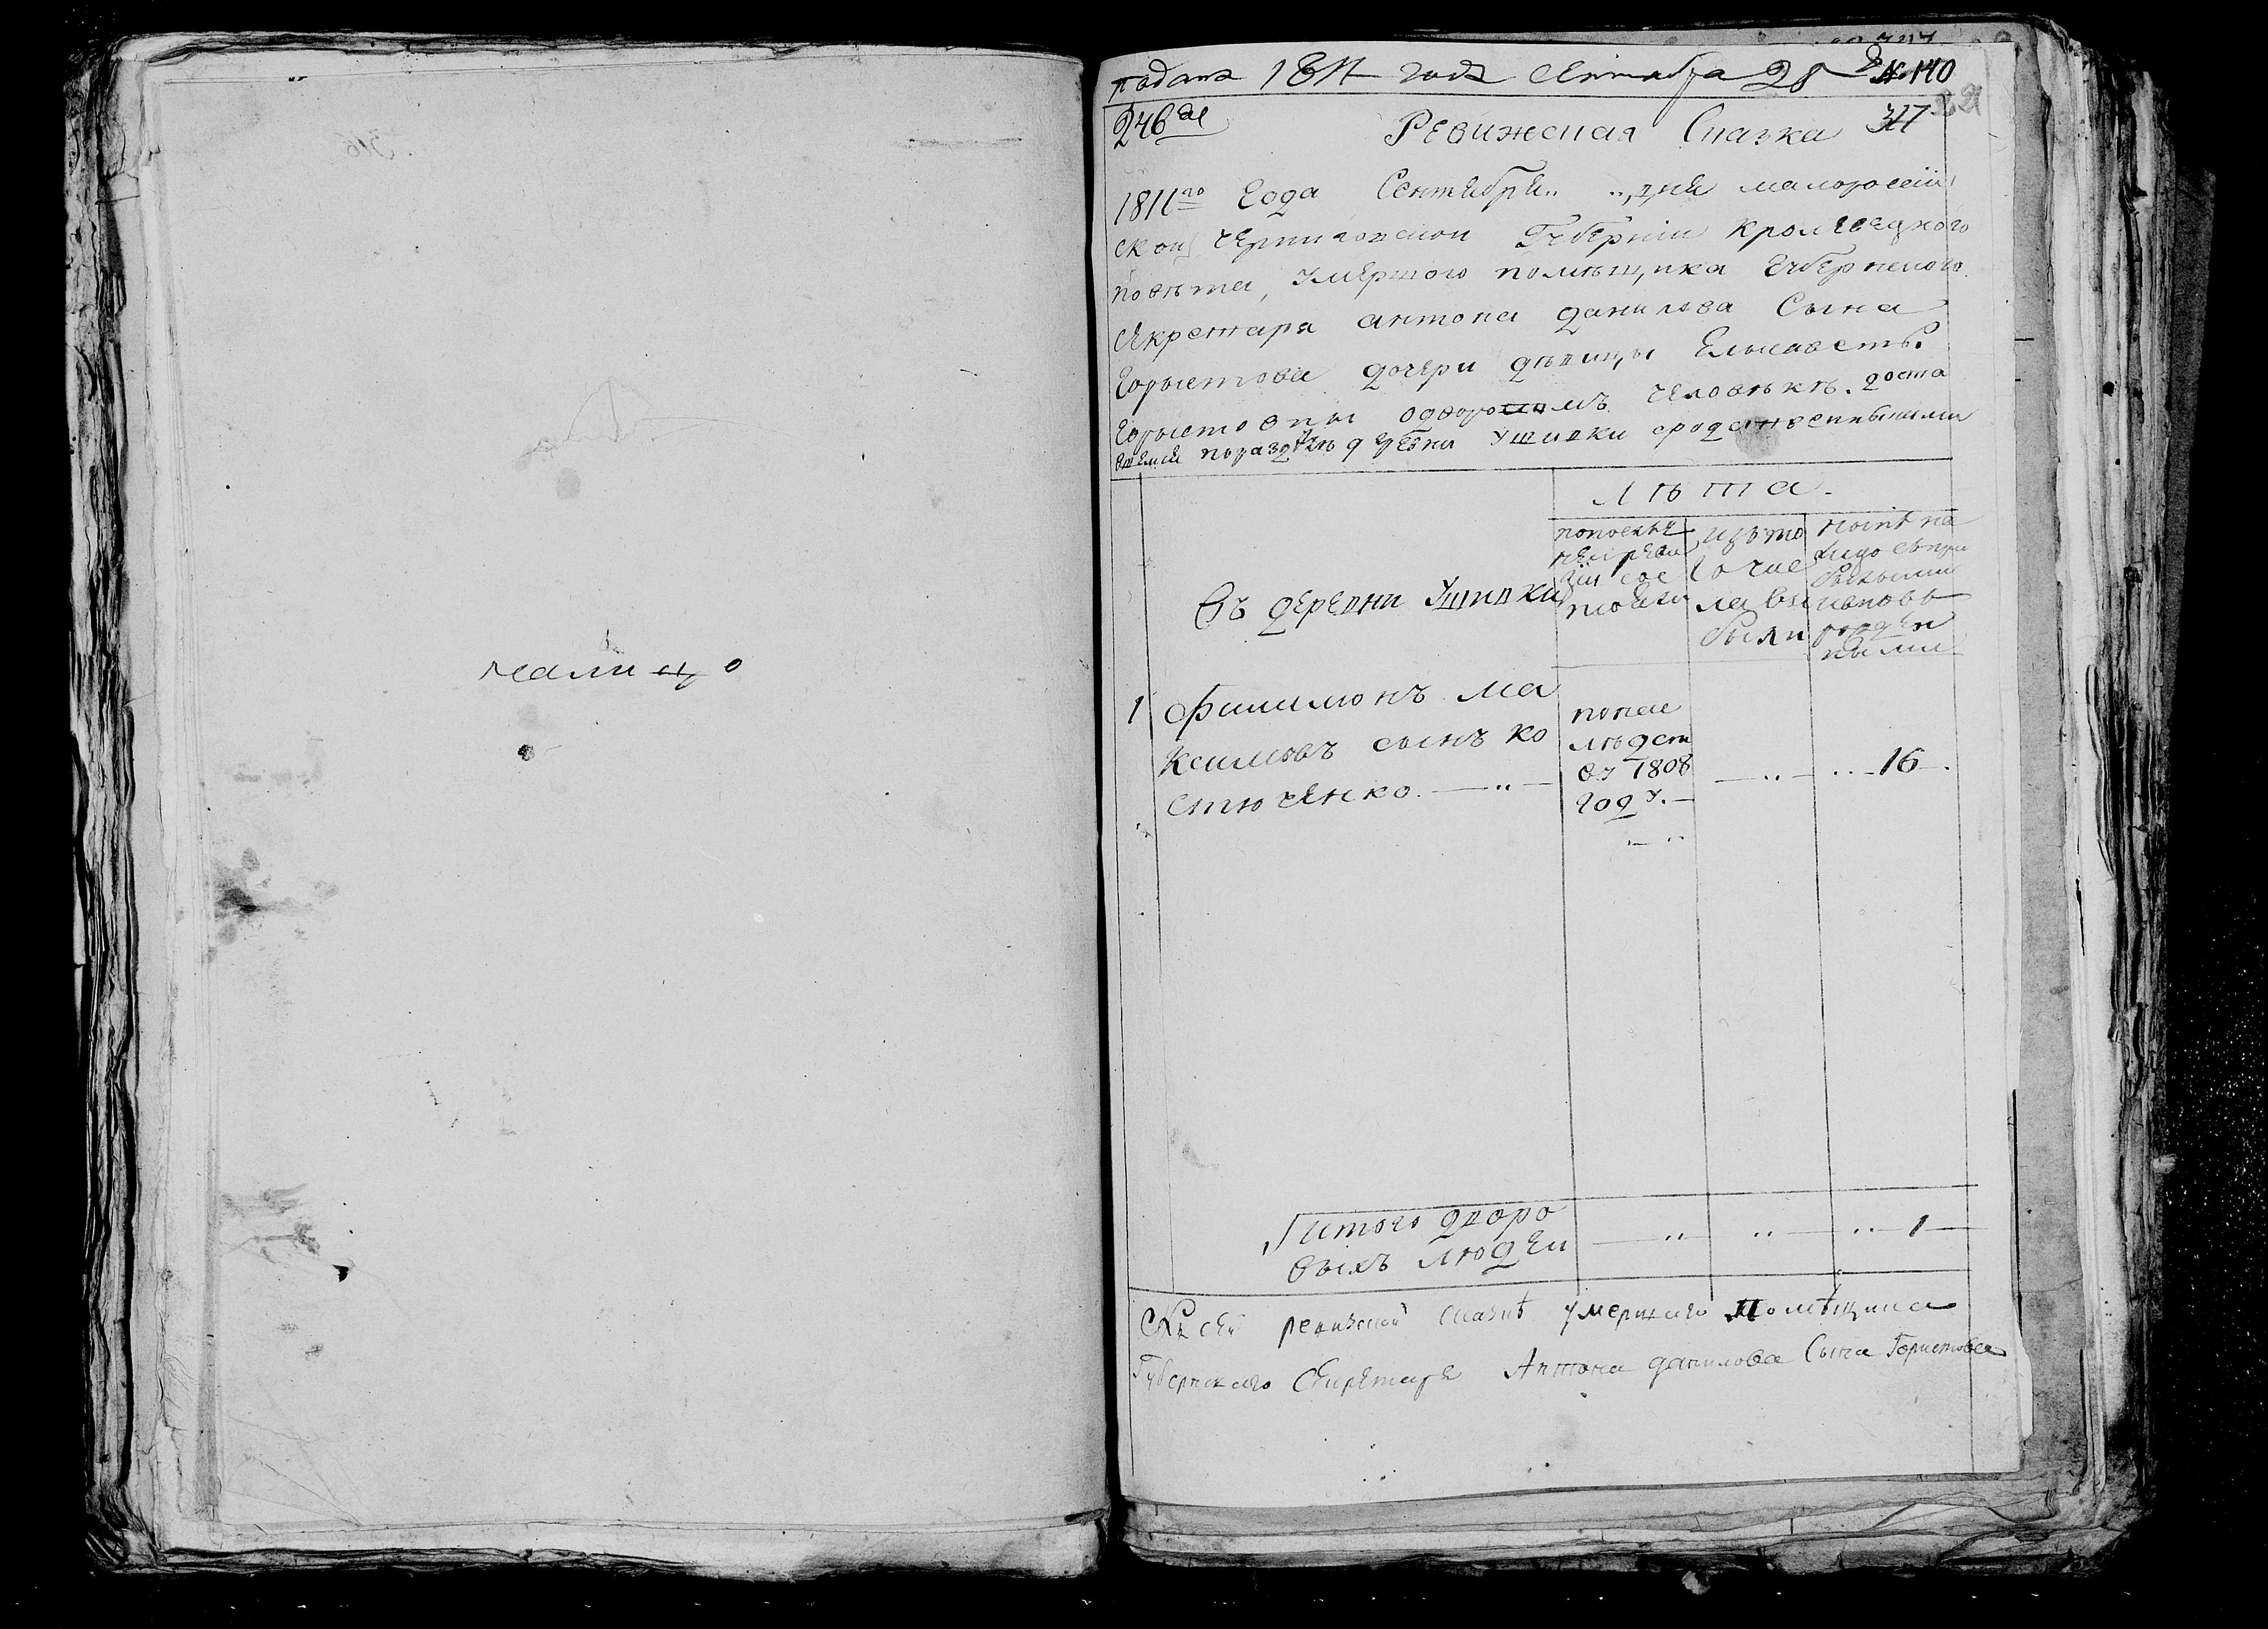 налицо
подана 1811 года Сентября 28 д № 140
246 де
317
Ревижская Сказка
1811го Года Сентября „ дня малоросий
ской Черниговской Губернии Кролевецкого
повѣта, умершого помѣщика Губернского
Секретаря антона данилова Сына
Горыстова дочери дѣвицы Елисавесть
Горыстовны одворовомъ человѣкѣ. доста
вшемся по раздѣлѣ
Лѣта.
Въ деревни Ущивки
по послѣд
ней реви
зіи сос
тояли
изъ то
го чис
ла вы
были
нынѣ на
лицо съ при
былыми
и вновь
рожден
ными
1 Филимонъ Ма
ксимовъ сынъ Ко
стюченко
по нас
лѣдст
въ 1808
году.
16
Итого дворо
выхъ людей
1
Къ сей ревизской сказкѣ умершаго помѣщика
Губернскаго Секретаря Антона данилова Сына Гористова